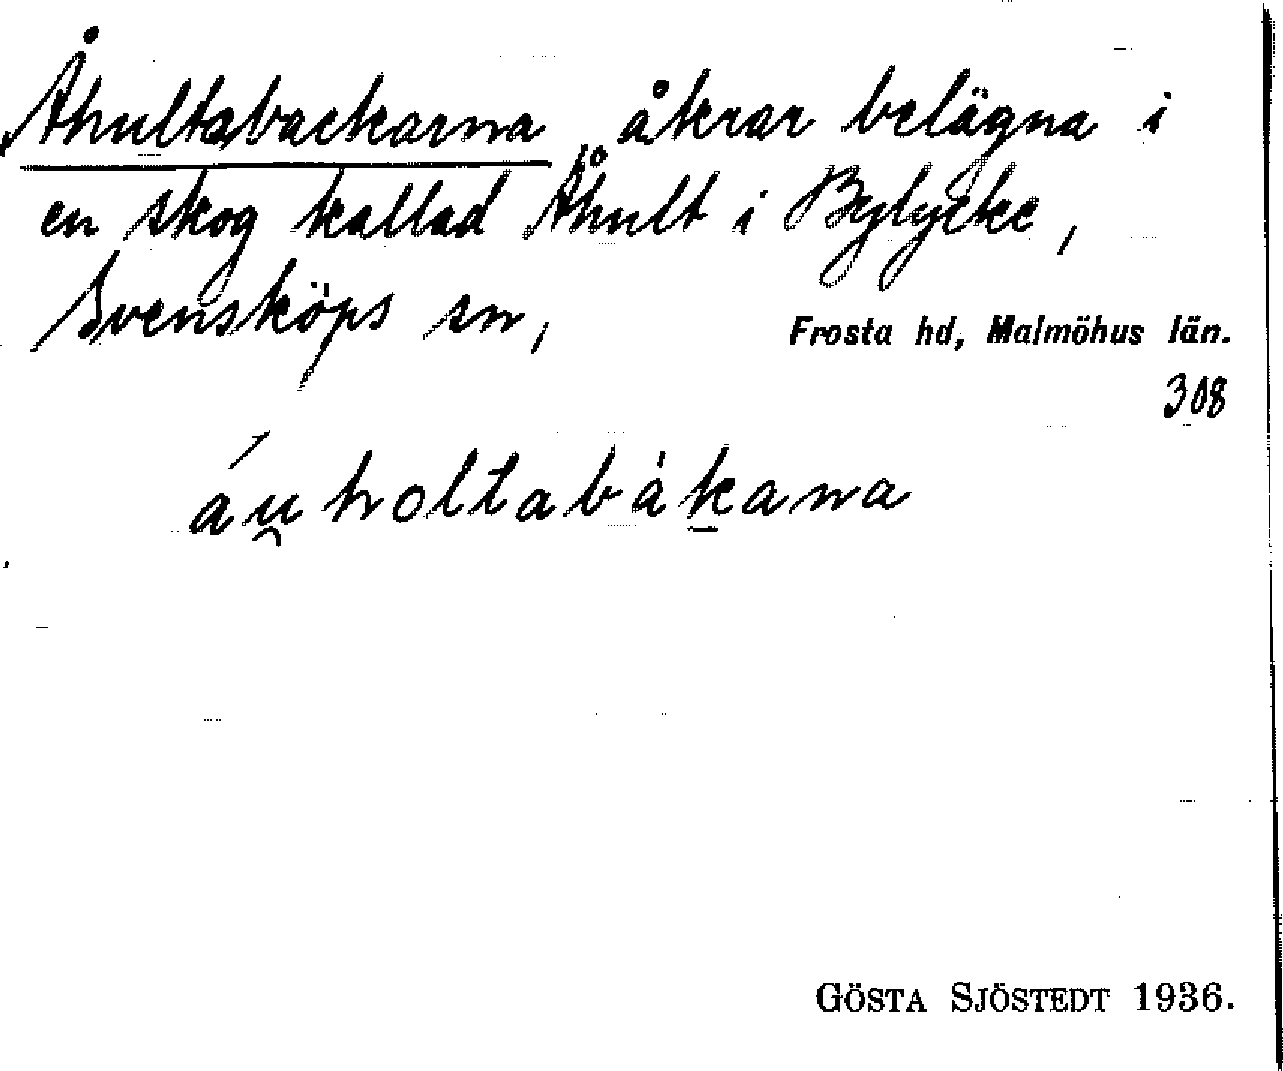 Åhultabackarna, åkrar belägna i
en skog kallad Åhult i Bylycke,
Svensköps sn,
Frosta hd, Malmöhus län.
308
áu̯holtabàk̠ana
GÖSTA SJÖSTEDT 1936.